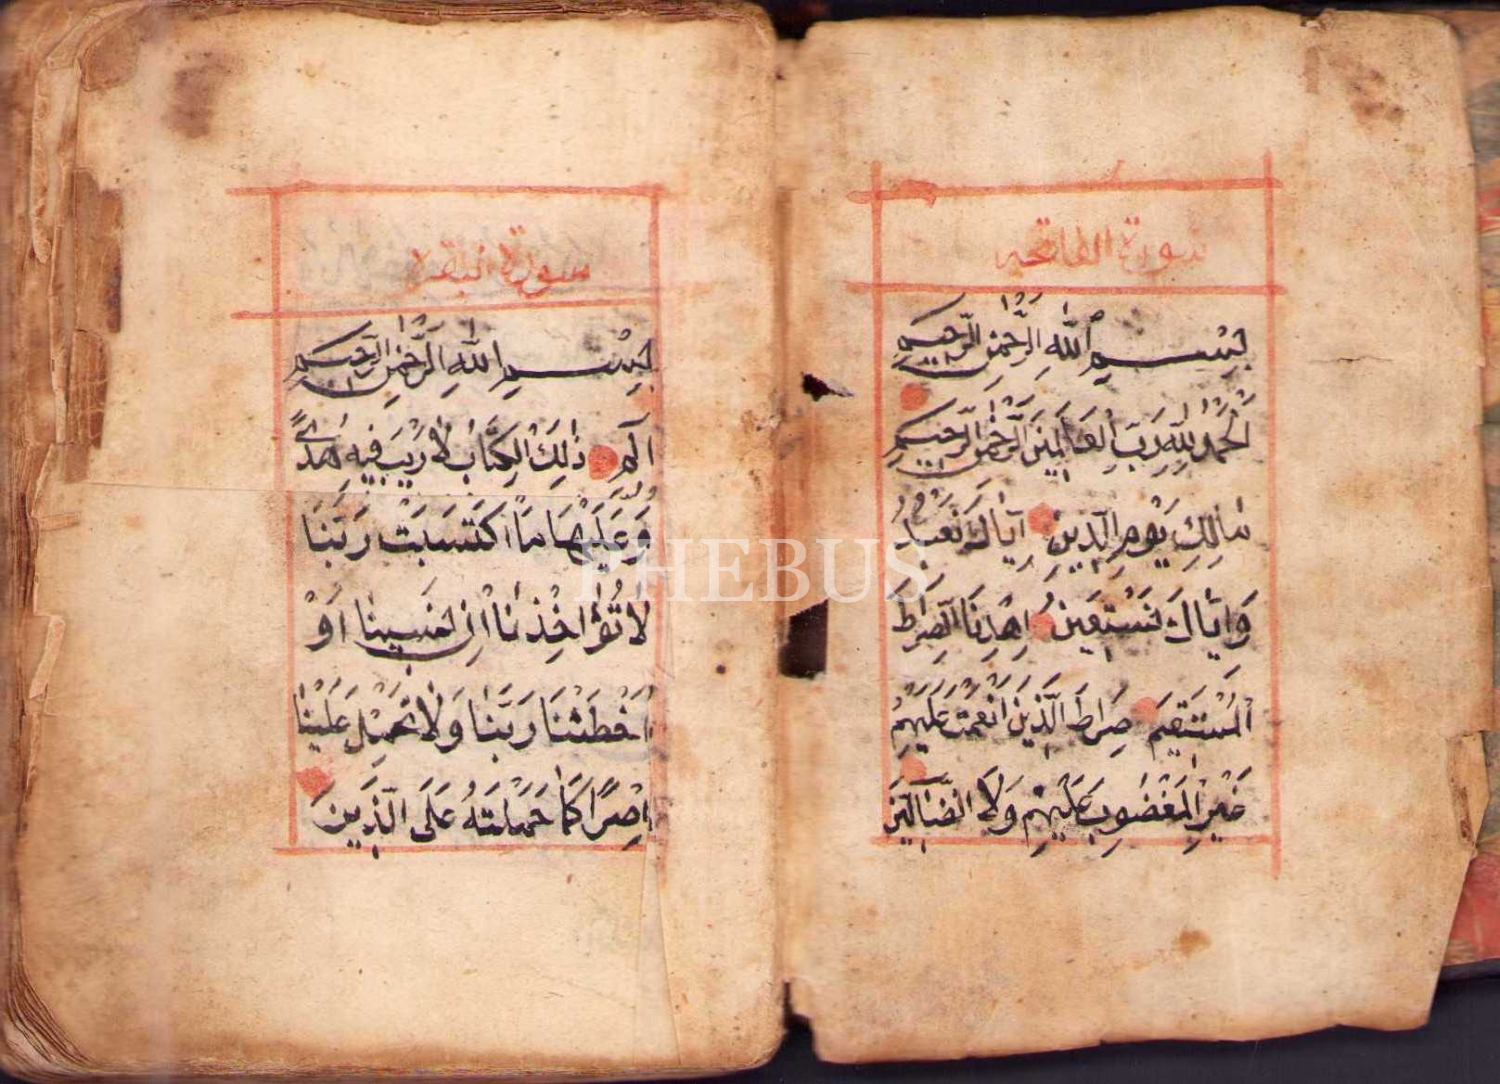 سورة الفاتحه
بِسْمِ اللهِ الرَّحْمٰنِ الرَّحِيمِ
اَلْحَمْدُ لِلّٰهِ رَبِّ الْعَالَمِينَ الرَّحْمٰنِ الرَّحِيمِ
مَالِكِ يَوْمِ الدِّينِ اِيَّاكَ نَعْبُدُ
وَاِيَّاكَ نَسْتَعِينُ اِهْدِنَا الصِّرَاطَ
الْمُسْتَقِيمَ صِرَاطَ الَّذِينَ اَنْعَمْتَ عَلَيْهِمْ
غَيْرِ الْمَغْضُوبِ عَلَيْهِمْ وَلَا الضَّالِّينَ
سورة البقرة
بِسْمِ اللهِ الرَّحْمٰنِ الرَّحِيمِ
الم ذٰلِكَ الْكِتَابُ لَا رَيْبَ فِيهِ هُدًى
وَعَلَيْهَا مَا اكْتَسَبَتْ رَبَّنَا
لَا تُؤَاخِذْنَا اِنْ نَسِينَا اَوْ
اَخْطَئْنَا رَبَّنَا وَلَا تَحْمِلْ عَلَيْنَا
اِصْرًا كَمَا حَمَلْتَهُ عَلَى الَّذِينَ
PHEBUS